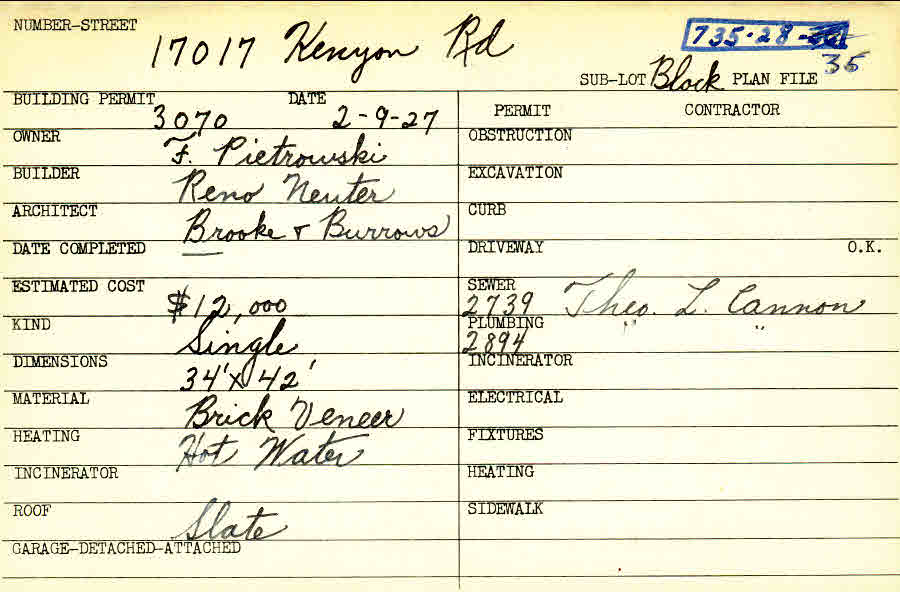 NUMBER-STREET
17017 Kenyon Rd
735-28-
35
SUB-LOT Block PLAN FILE
BUILDING PERMIT 3070 DATE 2-9-27
PERMIT CONTRACTOR
OWNER F. Pietrowski
OBSTRUCTION
BUILDER Reno Neuter
EXCAVATION
ARCHITECT Brooke & Burrows
CURB
DATE COMPLETED —
DRIVEWAY O.K.
ESTIMATED COST $12,000
SEWER 2739 Theo. L. Cannon
KIND Single
PLUMBING 2894 " "
DIMENSIONS 34' x 42'
INCINERATOR
MATERIAL Brick Veneer
ELECTRICAL
HEATING Hot Water
FIXTURES
INCINERATOR
HEATING
ROOF Slate
SIDEWALK
GARAGE-DETACHED-ATTACHED